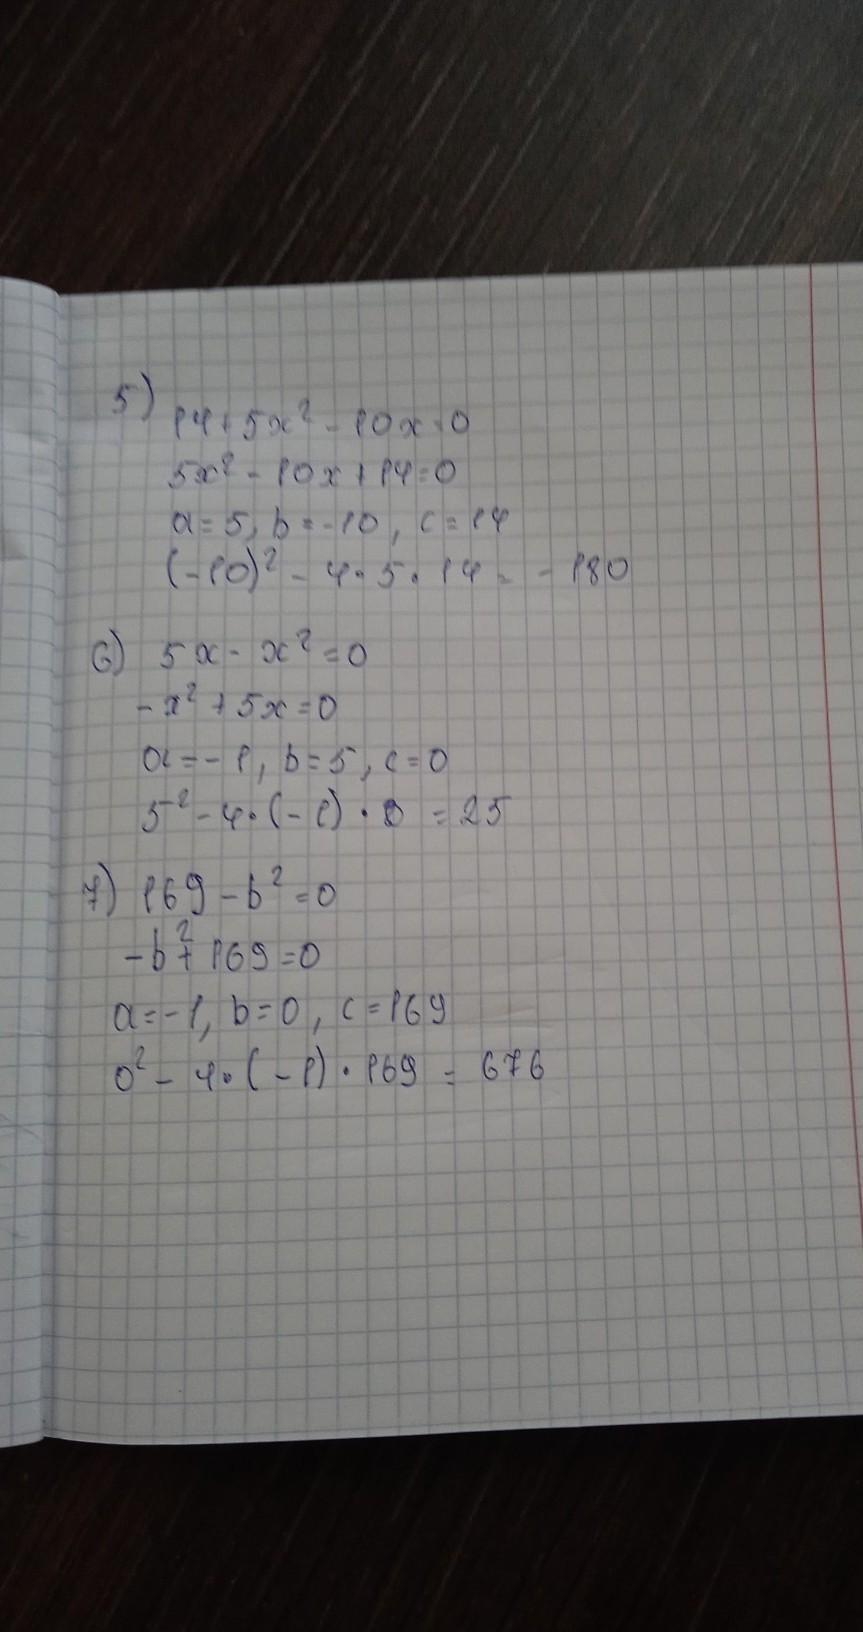 5)
14+5x²-10x=0
5x²-10x+14=0
a=5, b=-10, c=14
(-10)²-4·5·14=-180
6) 5x-x²=0
-x²+5x=0
a=-1, b=5, c=0
5²-4·(-1)·0=25
7) 169-b²=0
-b²+169=0
a=-1, b=0, c=169
0²-4·(-1)·169=676